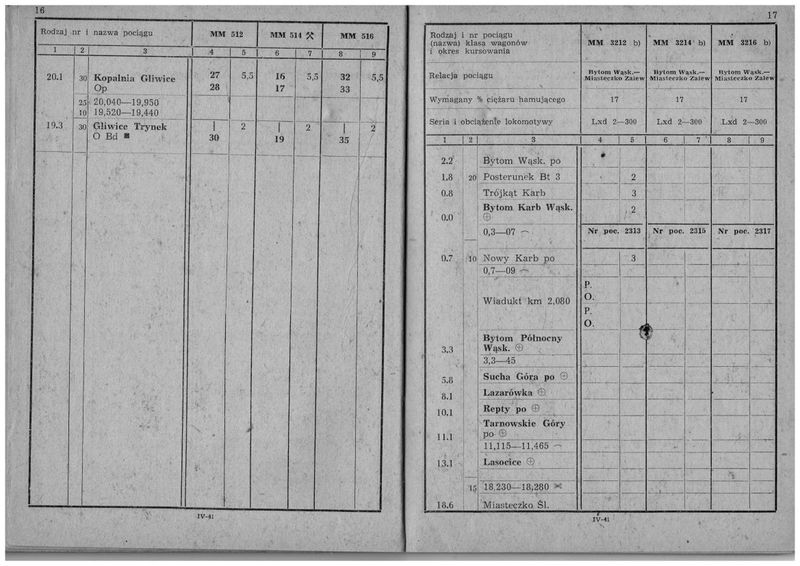 16
Rodzaj nr i nazwa pociągu MM 512 MM 514 ⚒ MM 516
1 2 3 4 5 6 7 8 9
20.1 30 Kopalnia Gliwice 27 5,5 16 5,5 32 5,5
Op 28 17 33
25 20,040—19,950
10 19,520—19,440
19.3 30 Gliwice Trynek | 2 | 2 | 2
O Bd ■ 30 19 35
IV-41
17
Rodzaj i nr pociągu
(nazwa) klasa wagonów MM 3212 b) MM 3214 b) MM 3216 b)
i okres kursowania
Relacja pociągu Bytom Wąsk.— Miasteczko Zalew Bytom Wąsk.— Miasteczko Zalew Bytom Wąsk.— Miasteczko Zalew
Wymagany % ciężaru hamującego 17 17 17
Seria i obciążenie lokomotywy Lxd 2—300 Lxd 2—300 Lxd 2—300
1 2 3 4 5 6 7 8 9
2.2 Bytom Wąsk. po
1.8 20 Posterunek Bt 3 2
0.8 Trójkąt Karb 3
Bytom Karb Wąsk. 2
0.0 ⊕
0,3—07 Nr poc. 2313 Nr poc. 2315 Nr poc. 2317
0.7 10 Nowy Karb po 3
0,7—09
P.
Wiadukt km 2,080 O.
P.
O.
Bytom Północny
3.3 Wąsk. ⊕
3,3—45
5.8 Sucha Góra po ⊕
8.1 Lazarówka ⊕
10.1 Repty po ⊕
Tarnowskie Góry
11.1 po ⊕
11,115—11,465
13.1 Lasocice ⊕
15 18,230—18,280
18.6 Miasteczko Śl.
IV-41